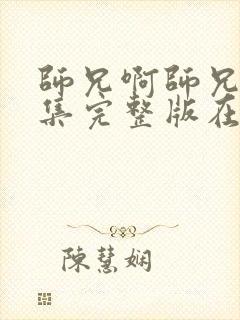 師兄啊師兄
集完整版在
陳慧嫻